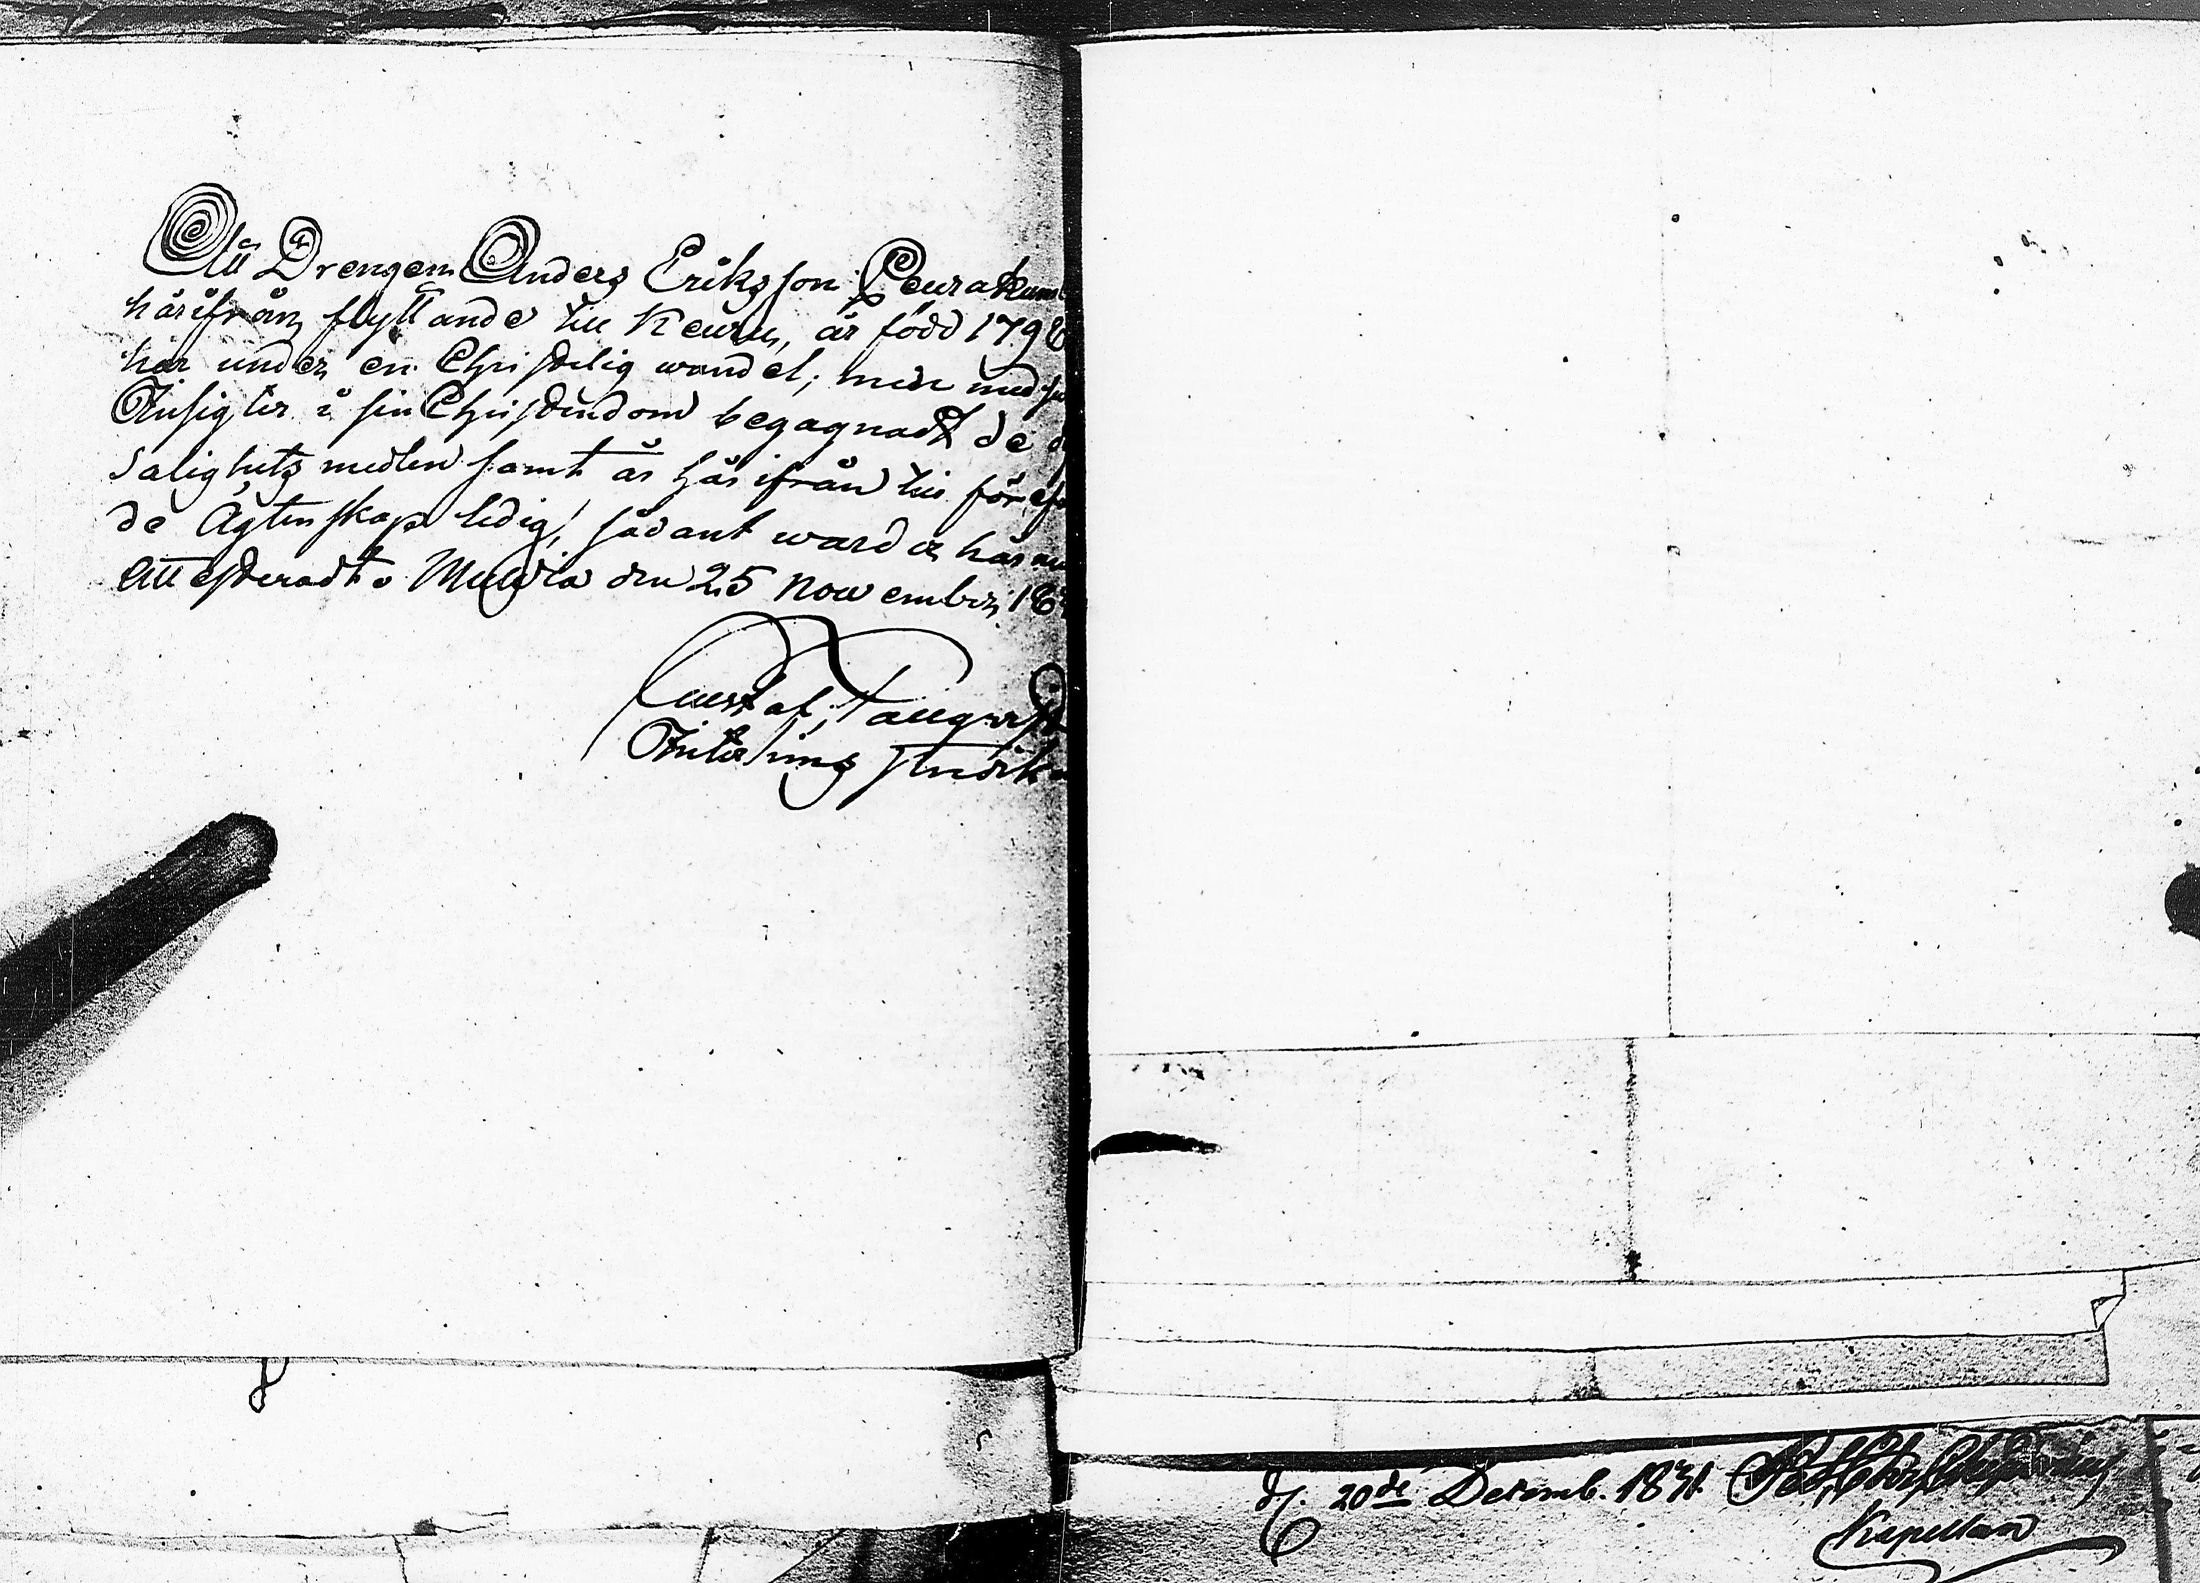 Att Drengen Anders Eriksson Peurakum
härifrån flyttande till Keuru, är född 1798
här under en Christelig wandel; med
Insigter i sin Christendom begagnadt de
Salighets medlen samt är härifrån till
de Ägtenskap ledig, sådant warder
Attesteradt. Multia den 25 November 18
Gustaf
d. 20de Decemb. 1831.
Kapellan